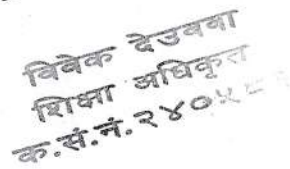 विवेक देउववा
शिक्षा अधिकृत
क.सं.नं. २४०५